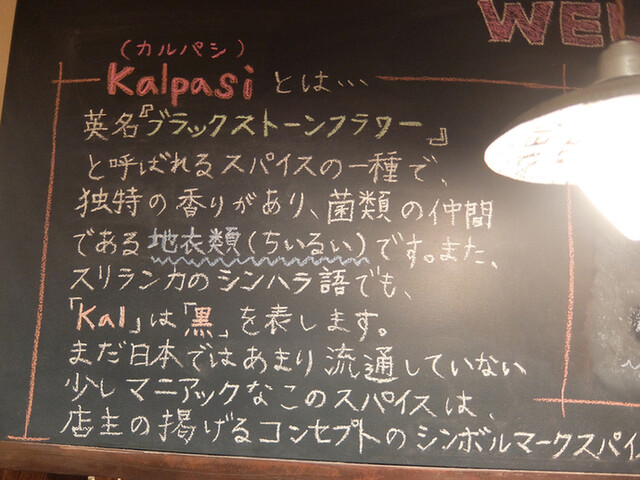 WEL
(カルパシ)
Kalpasiとは…
英名『ブラックストーンフラワー』
と呼ばれるスパイスの一種で、
独特の香りがあり、菌類の仲間
である地衣類(ちいるい)です。また、
スリランカのシンハラ語でも、
「Kal」は「黒」を表します。
まだ日本ではあまり流通していない
少しマニアックなこのスパイスは、
店主の掲げるコンセプトのシンボルマークスパイ